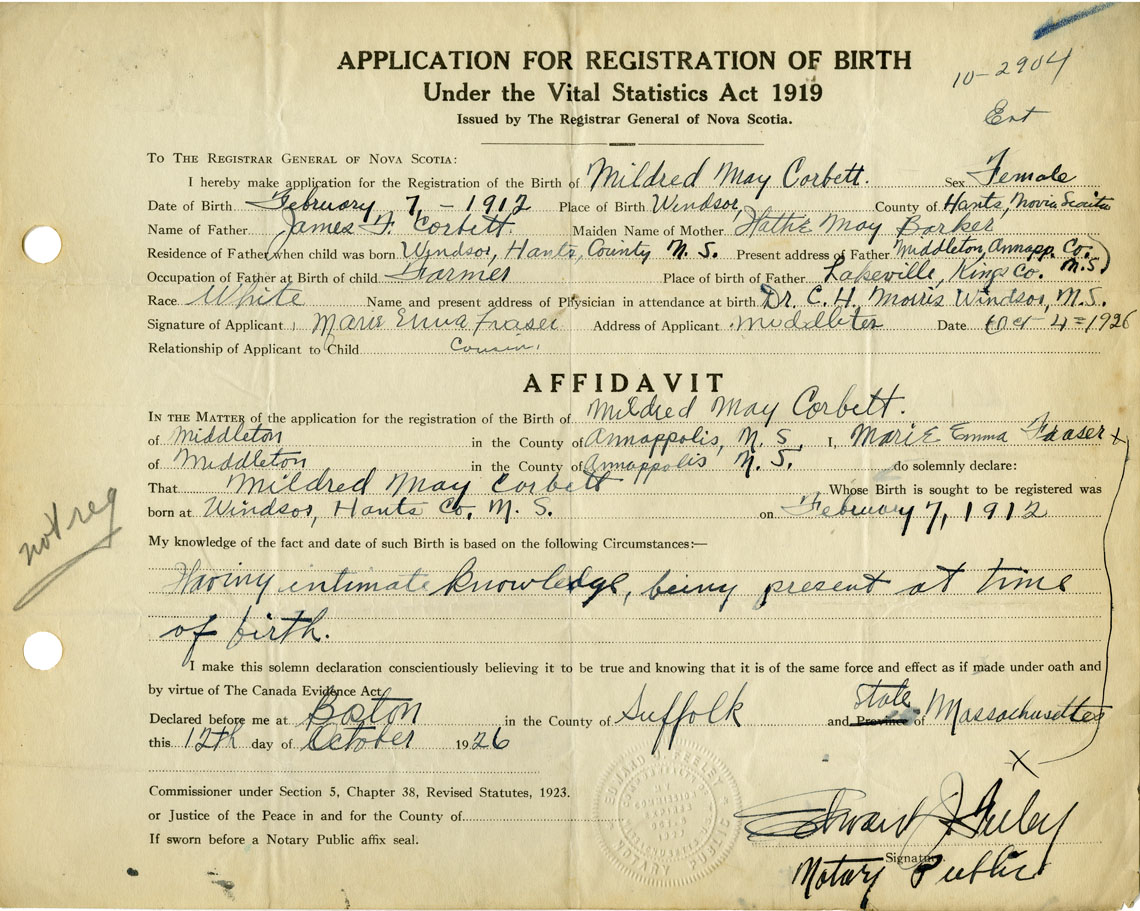 10-2904
Ent
APPLICATION FOR REGISTRATION OF BIRTH
Under the Vital Statistics Act 1919
Issued by The Registrar General of Nova Scotia.
TO THE REGISTRAR GENERAL OF NOVA SCOTIA:
I hereby make application for the Registration of the Birth of Mildred May Corbett. Sex Female
Date of Birth February 7, - 1912 Place of Birth Windsor, County of Hants, Novia Scotia
Name of Father James F. Corbett. Maiden Name of Mother Hattie May Barker
Residence of Father when child was born Windsor, Hants, County N. S. Present address of Father Middleton, Annapp. Co. N.S.
Occupation of Father at Birth of child Farmer Place of birth of Father Lakeville, Kings Co.
Race White Name and present address of Physician in attendance at birth Dr. C. H. Morris Windsor, N.S.
Signature of Applicant Marie Emma Fraser Address of Applicant Middleton Date Oct 4 = 1926
Relationship of Applicant to Child Cousin.
AFFIDAVIT
IN THE MATTER of the application for the registration of the Birth of Mildred May Corbett.
of Middleton in the County of Annappolis, N. S. I, Marie Emma Fraser x
of Middleton in the County of Annappolis N. S. do solemnly declare:
That Mildred May Corbett Whose Birth is sought to be registered was
born at Windsor, Hants Co. N. S. on February 7, 1912
not reg
My knowledge of the fact and date of such Birth is based on the following Circumstances:—
Having intimate knowledge, being present at time
of birth.
I make this solemn declaration conscientiously believing it to be true and knowing that it is of the same force and effect as if made under oath and
by virtue of The Canada Evidence Act
Declared before me at Boston in the County of Suffolk and Province State of Massachusettes
this 12th day of October 1926
x
Commissioner under Section 5, Chapter 38, Revised Statutes, 1923.
or Justice of the Peace in and for the County of
If sworn before a Notary Public affix seal.
Edward J. Feeley
Signature.
Notary Public
NOTARY PUBLIC